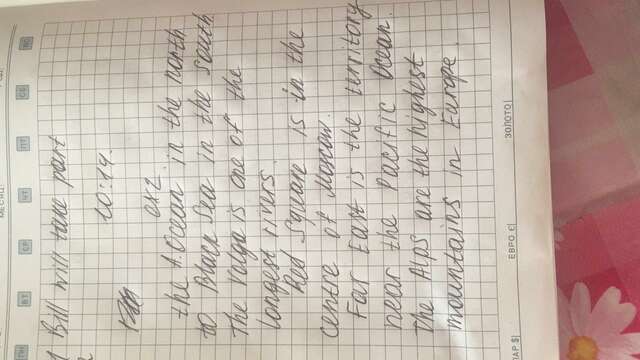 Bill will take part
10:14.
ex2
the A. Ocean in the north
to Black Sea in the South
The Volga is one of the
longest rivers.
Red Square is in the
centre of Moscow.
Far East is the territory
near the Pacific Ocean.
The Alps are the highest
mountains in Europe.
МЕСЯЦ:
ВТ
СР
ЧТ
ПТ
СБ
ЕВРО €|
ЗОЛОТО|